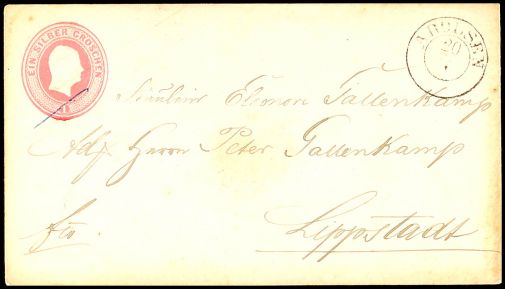 EIN SILBER GROSCHEN
1
AROLSEN
20
Fräulein Eleonore Fallenkamp
Adj. Herrn Peter Fallenkamp
fco.
Lippstadt